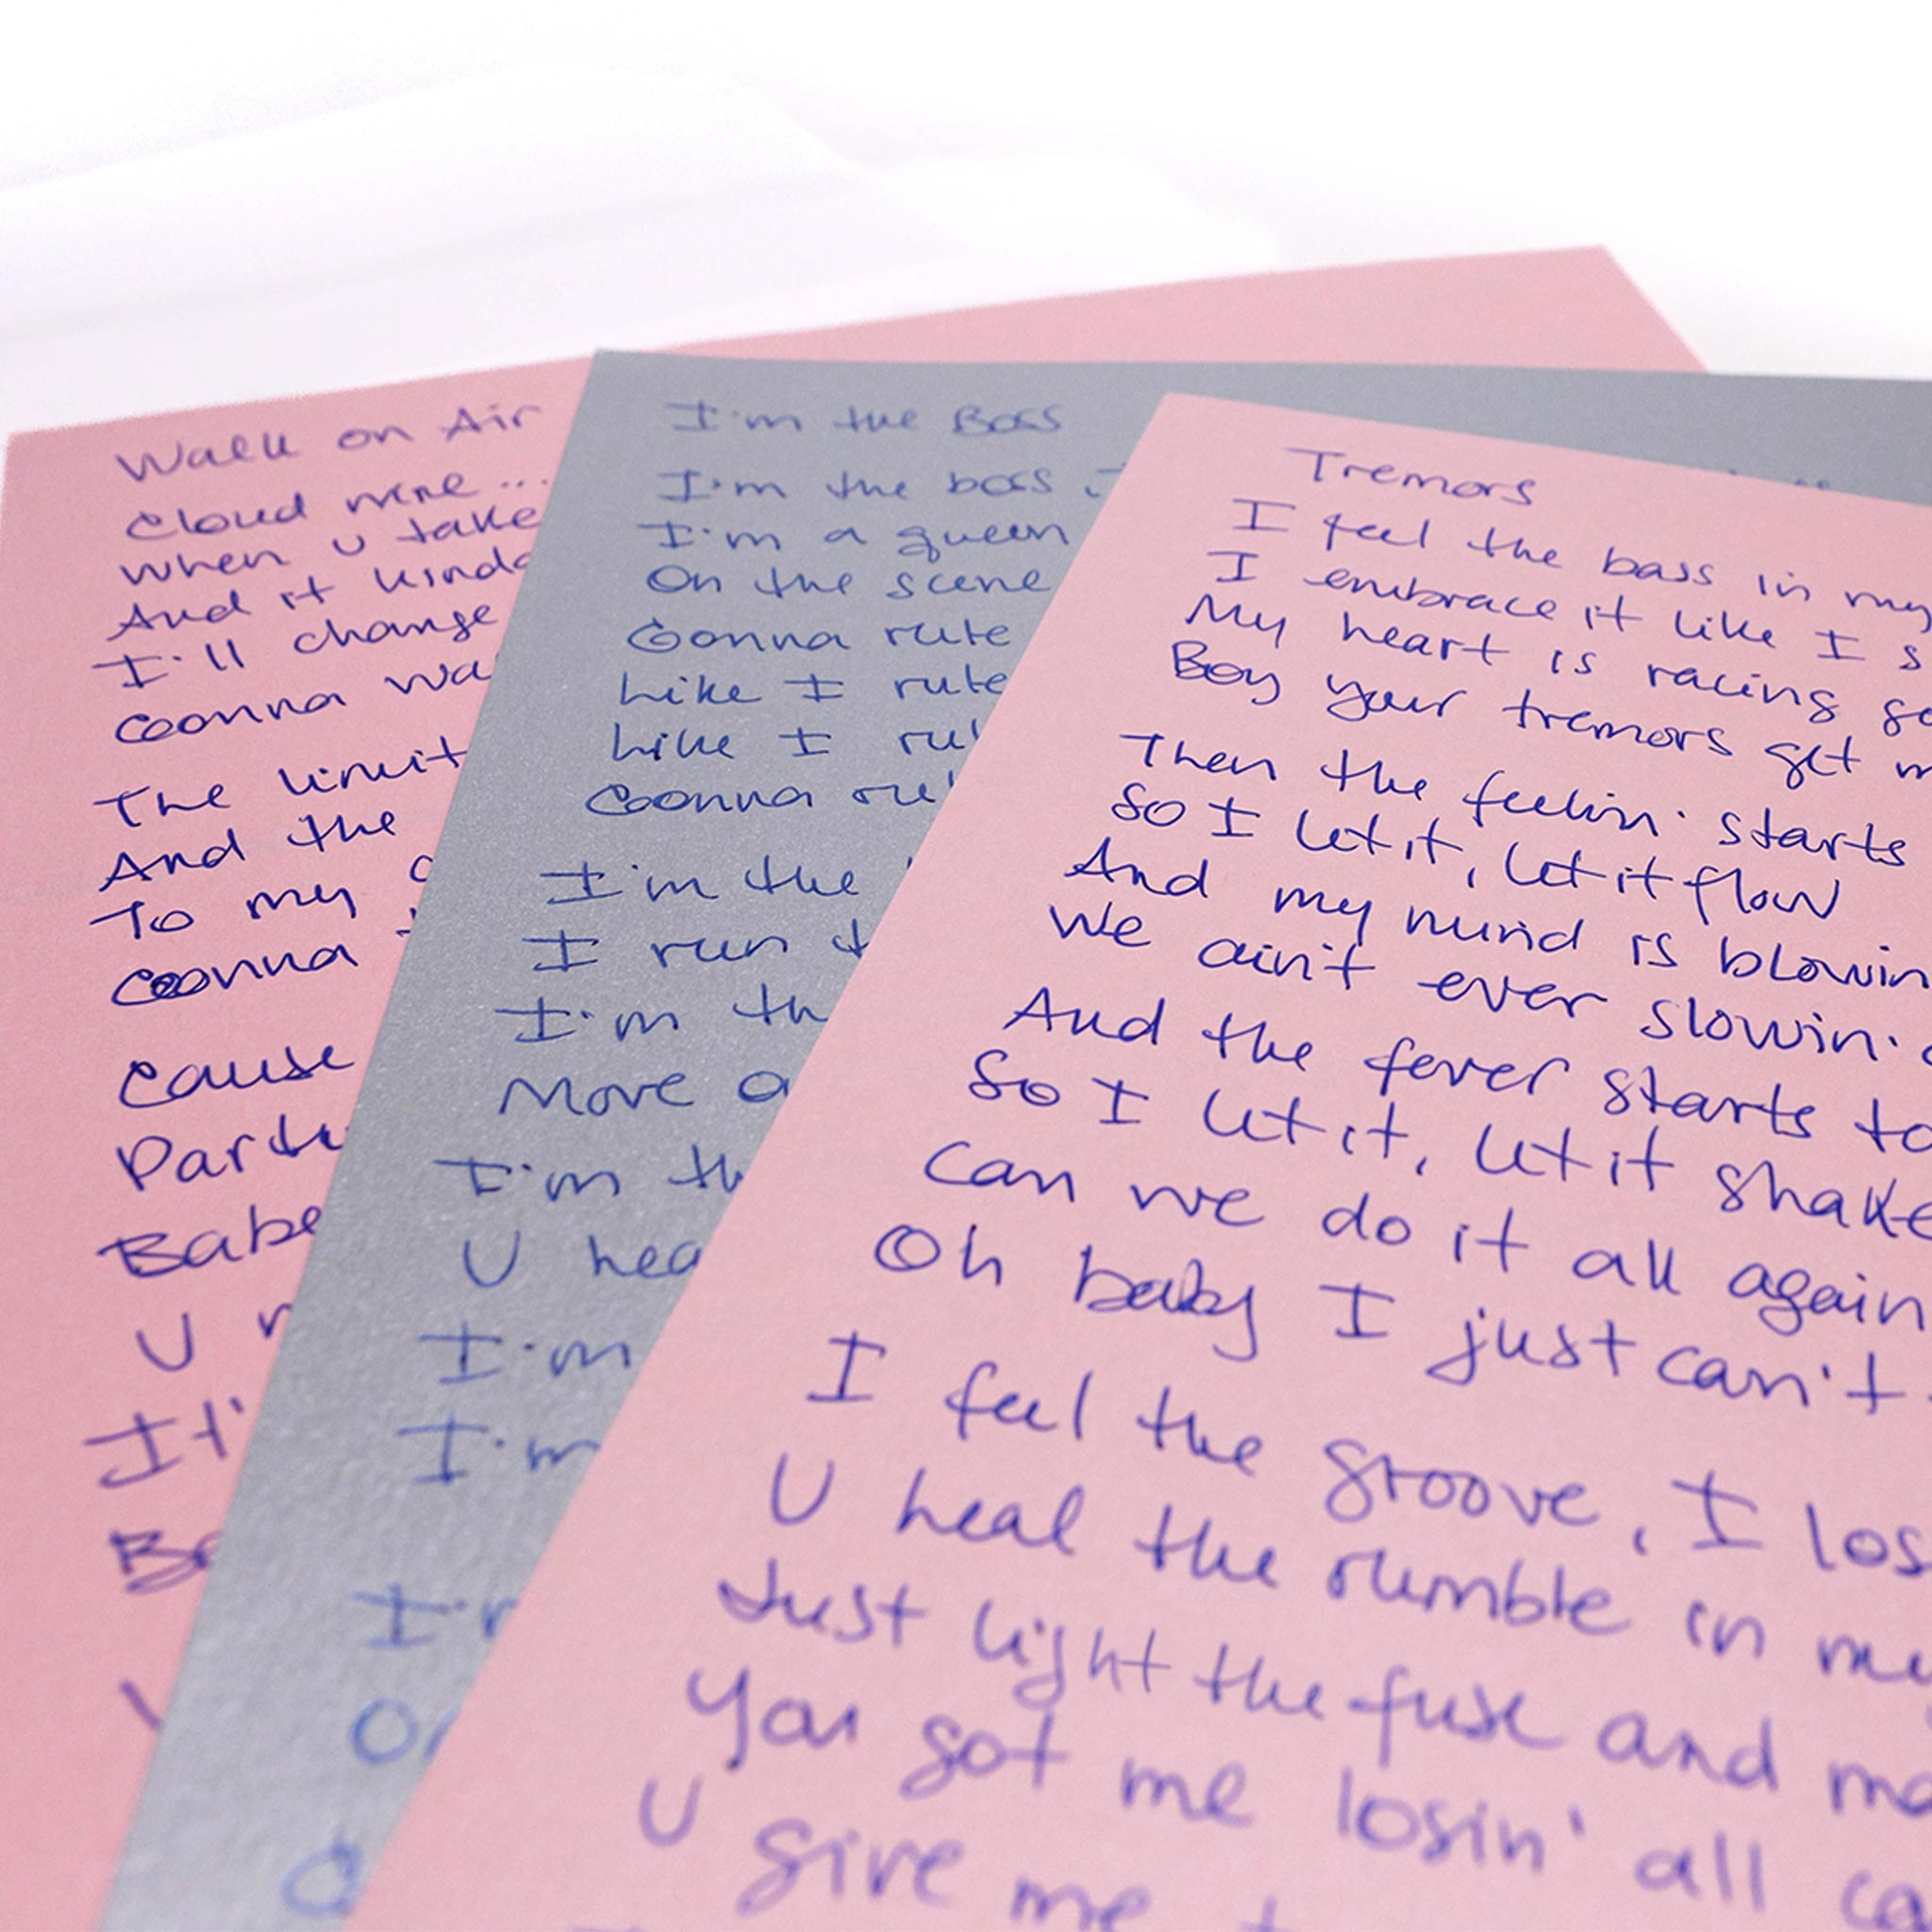 Walk on Air
Cloud nine...
When U take
And it kinda
I'll change
Gonna wa
The limit
And the
To my
Gonna
Cause
Party
Babe
U
It'
I'm the Boss
I'm the boss
I'm a queen
On the scene
Gonna rule
Like I rule
Like I rul
Gonna rul
I'm the
I run t
I'm th
Move a
I'm th
U hea
I'm
I'm
Tremors
I feel the bass in my
I embrace it like I s
My heart is racing so
Boy your tremors get m
Then the feelin' starts
So I let it, let it flow
And my mind is blowin
We ain't ever slowin'
And the fever starts to
So I let it, let it shake
Can we do it all again
Oh baby I just can't
I feel the groove, I los
U heal the rumble in my
Just light the fuse and ma
You got me losin' all co
U give me t